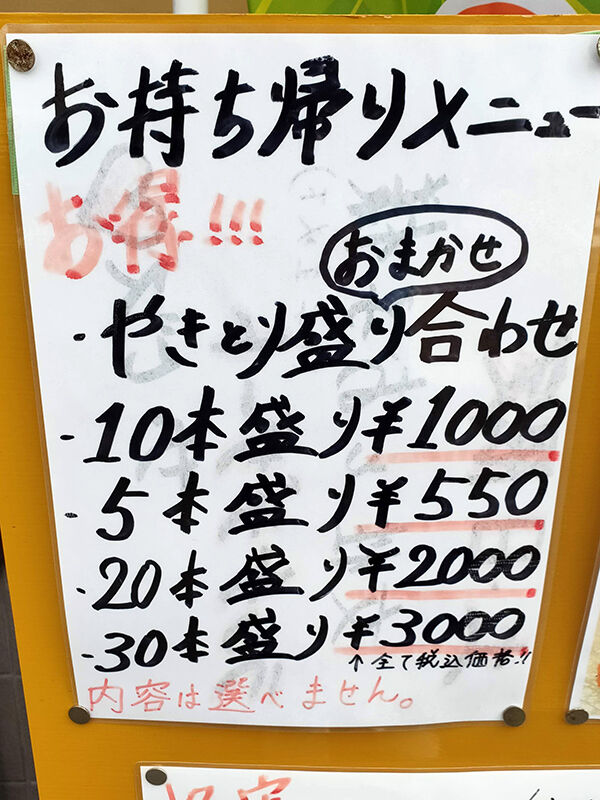 お持ち帰りメニュー
お得!!!
おまかせ
・やきとり盛り合わせ
・10本盛り¥1000
・5本盛り¥550
・20本盛り¥2000
・30本盛り¥3000
↑全て税込価格!!
内容は選べません。